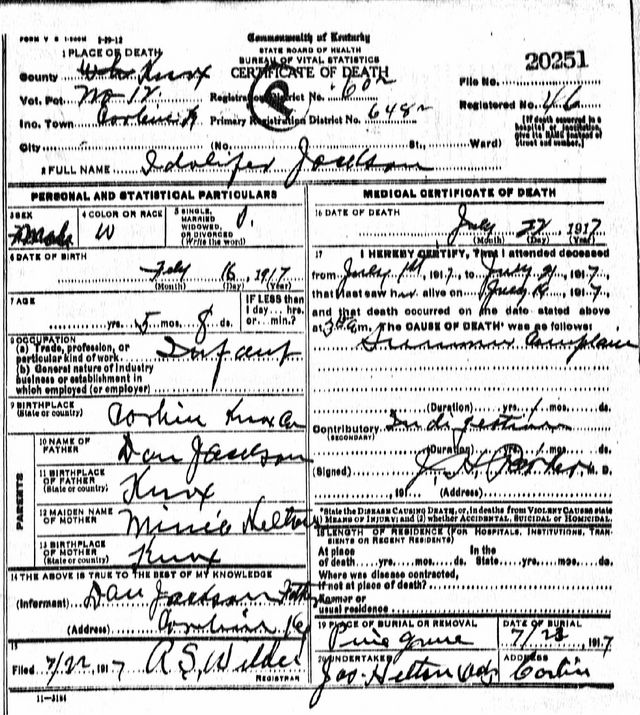 FORM V S 1-500M 5-29-12
Commonwealth of Kentucky
STATE BOARD OF HEALTH
BUREAU OF VITAL STATISTICS
CERTIFICATE OF DEATH
20251
1 PLACE OF DEATH
County Knox
Vot. Pct. No 12
Inc. Town Corbin Ky
City (No. St., Ward)
Registration District No. 602
Primary Registration District No. 6482
File No.
Registered No. 46
[If death occurred in a hospital or institution, give its NAME instead of street and number.]
2 FULL NAME Jackson
PERSONAL AND STATISTICAL PARTICULARS
3 SEX
4 COLOR OR RACE W
5 SINGLE, MARRIED WIDOWED, OR DIVORCED (Write the word)
6 DATE OF BIRTH
Feby 16, 1917
(Month) (Day) (Year)
7 AGE
yrs. 5 mos. 8 ds.
IF LESS than 1 day... hrs. or... min.?
8 OCCUPATION
(a) Trade, profession, or particular kind of work Infant
(b) General nature of Industry business or establishment in which employed (or employer)
9 BIRTHPLACE (State or country) Corbin Knox Co
PARENTS
10 NAME OF FATHER Dan Jackson
11 BIRTHPLACE OF FATHER (State or country) Knox
12 MAIDEN NAME OF MOTHER Minie Helton
13 BIRTHPLACE OF MOTHER (State or country) Knox
14 THE ABOVE IS TRUE TO THE BEST OF MY KNOWLEDGE
(Informant) Dan Jackson Father
(Address) Corbin Ky
15
Filed 7/22, 1917 R.S. Wilder
REGISTRAR
11-3184
MEDICAL CERTIFICATE OF DEATH
16 DATE OF DEATH
July 22 1917
(Month) (Day) (Year)
17 I HEREBY CERTIFY, That I attended deceased
from July 1st, 1917, to July 21, 1917,
that I last saw her alive on July 19, 1917,
and that death occurred on the date stated above
at 3 a m. The CAUSE OF DEATH* was as follows:
Summer Complaint
(Duration) yrs. 1 mos. ds.
Contributory (SECONDARY) Indigestion
(Duration) yrs. 1 mos. ds.
(Signed) J. H. Parker, M. D.
, 191 (Address)
*State the DISEASE CAUSING DEATH, or, in deaths from VIOLENT CAUSES state (1) MEANS OF INJURY; and (2) whether ACCIDENTAL, SUICIDAL OR HOMICIDAL.
18 LENGTH OF RESIDENCE (FOR HOSPITALS, INSTITUTIONS, TRANSIENTS OR RECENT RESIDENTS)
At place of death yrs. mos. ds. In the State yrs. mos. ds.
Where was disease contracted, if not at place of death?
Former or usual residence
19 PLACE OF BURIAL OR REMOVAL Pine Grove
DATE OF BURIAL 7/23, 1917
20 UNDERTAKER Jas. Helton
ADDRESS Corbin